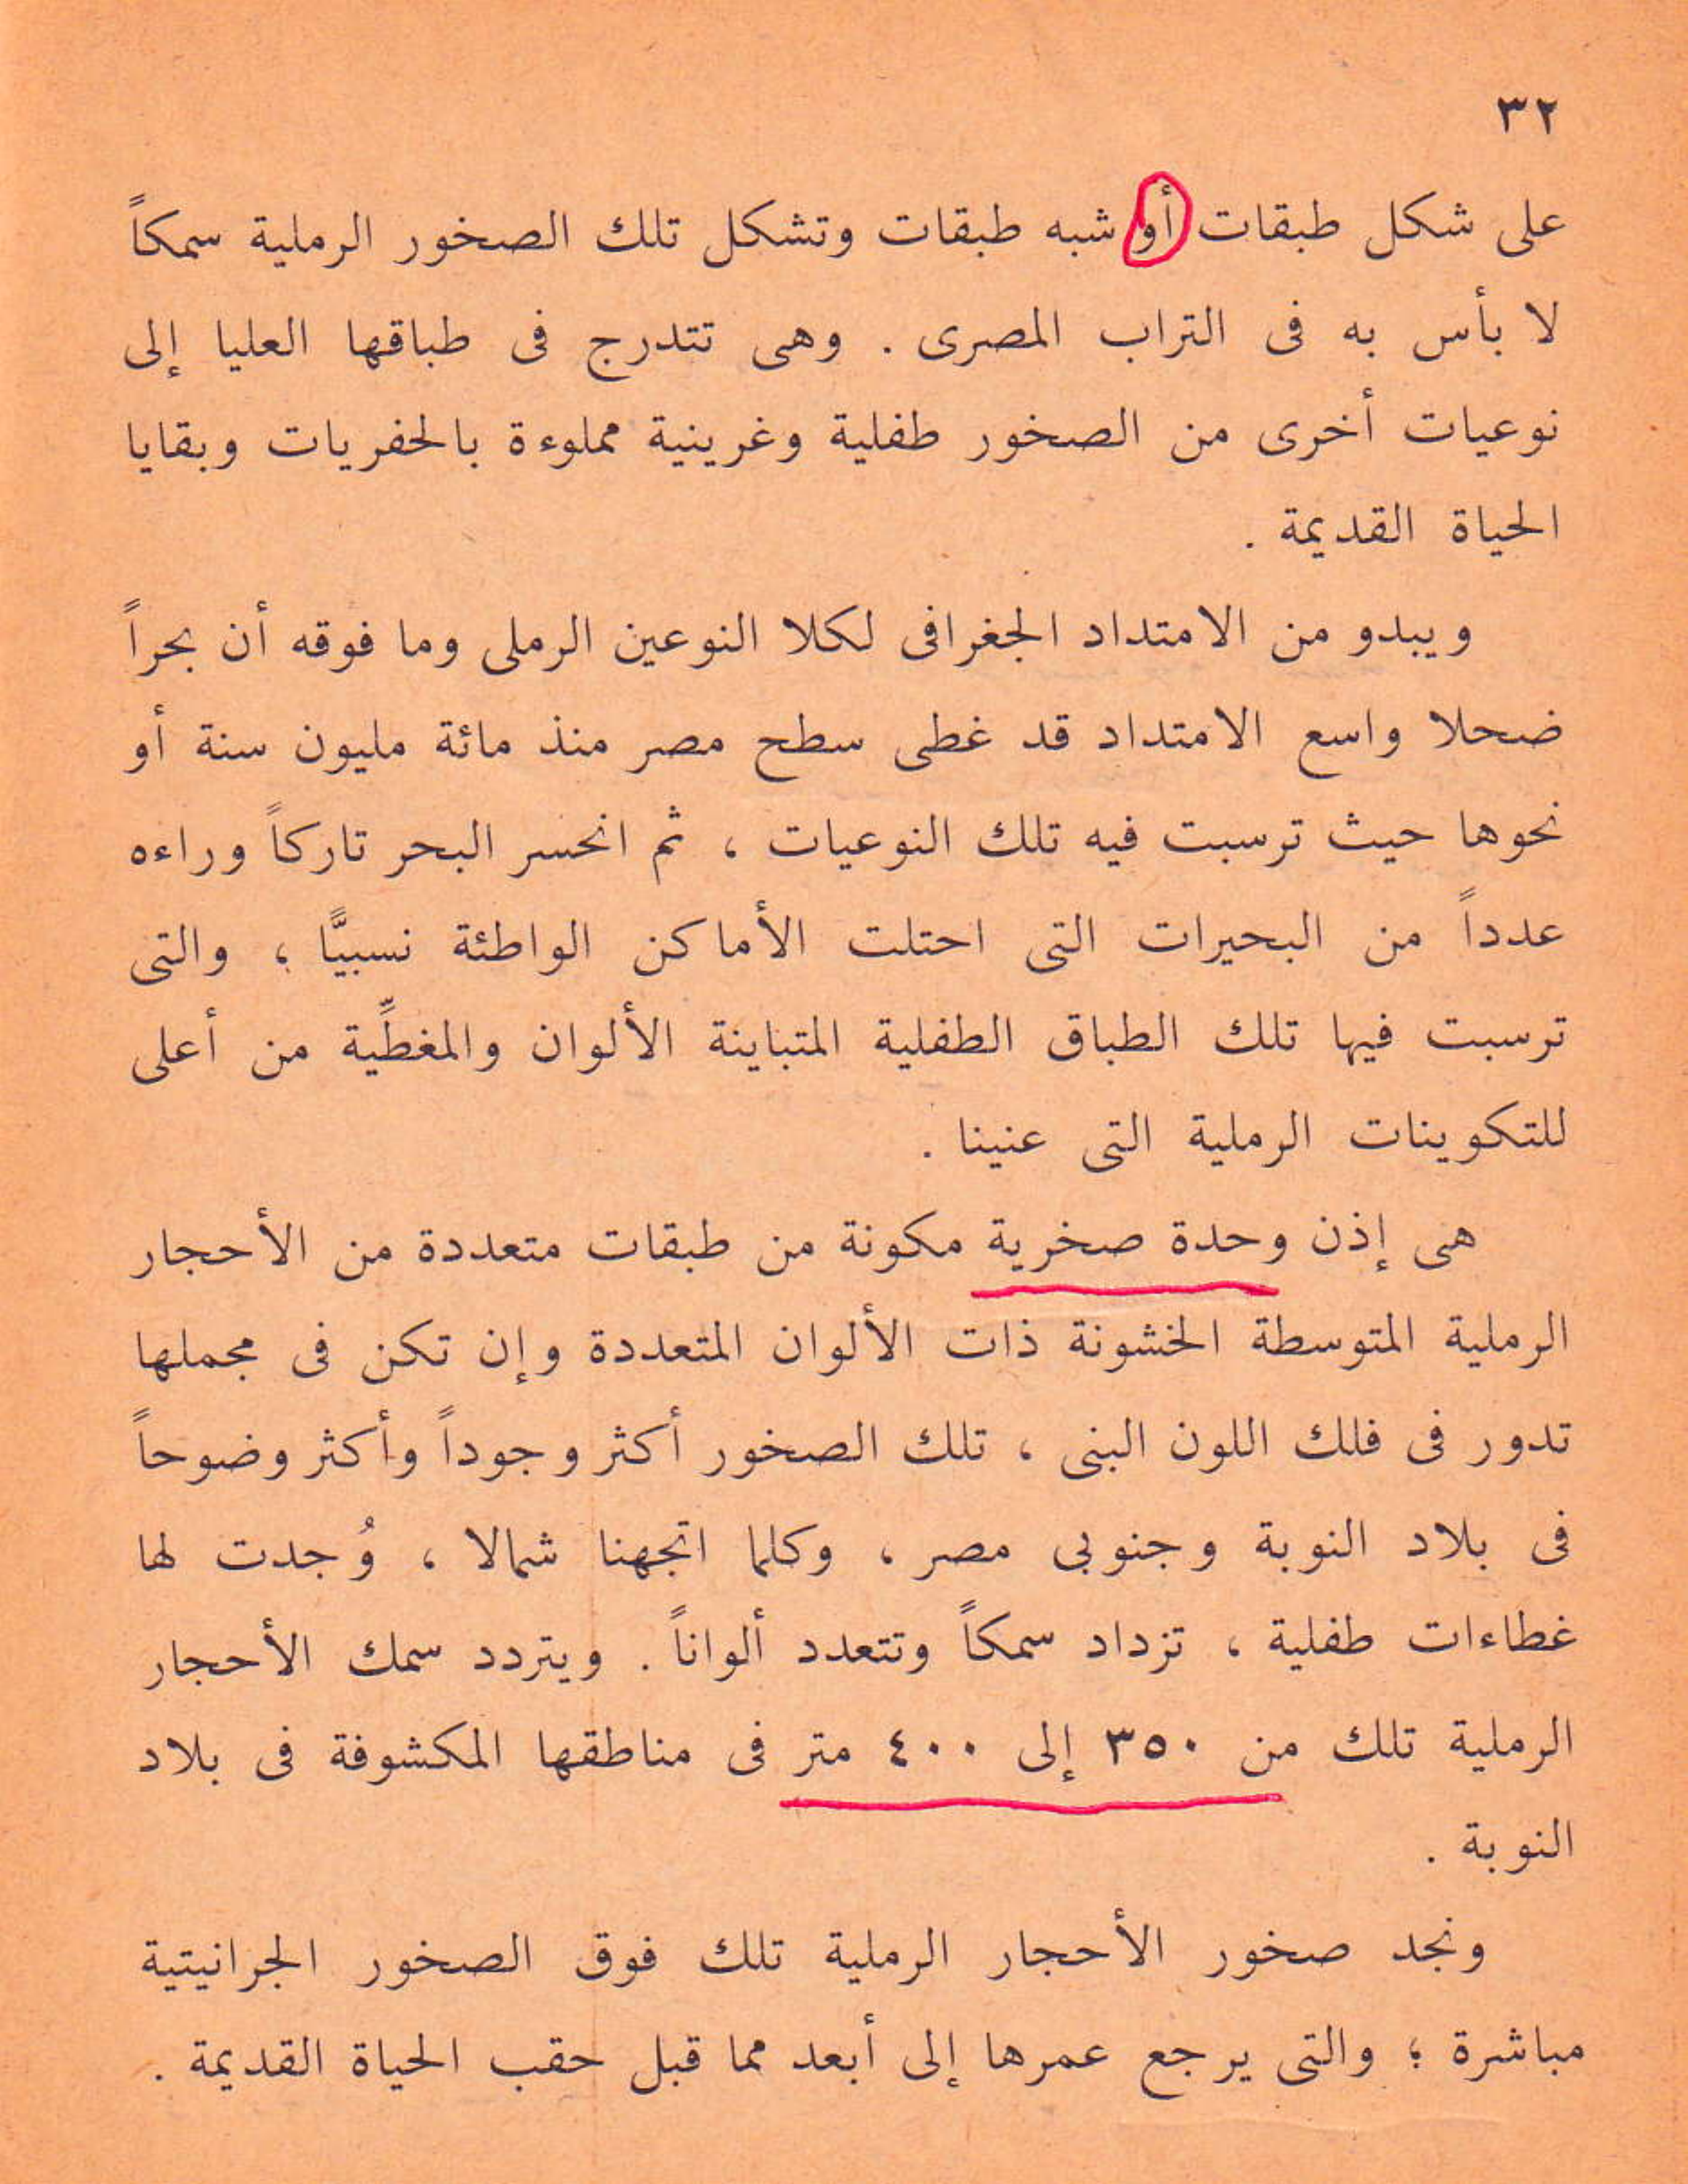 ٣٢
على شكل طبقات أو شبه طبقات وتشكل تلك الصخور الرملية سمكاً
لا بأس به فى التراب المصرى . وهى تتدرج فى طباقها العليا إلى
نوعيات أخرى من الصخور طفلية وغرينية مملوءة بالحفريات وبقايا
الحياة القديمة .
ويبدو من الامتداد الجغرافى لكلا النوعين الرملى وما فوقه أن بحراً
ضحلا واسع الامتداد قد غطى سطح مصر منذ مائة مليون سنة أو
نحوها حيث ترسبت فيه تلك النوعيات ، ثم انحسر البحر تاركاً وراءه
عدداً من البحيرات التى احتلت الأماكن الواطئة نسبيًّا ، والتى
ترسبت فيها تلك الطباق الطفلية المتباينة الألوان والمغطِّية من أعلى
للتكوينات الرملية التى عنينا .
هى إذن وحدة صخرية مكونة من طبقات متعددة من الأحجار
الرملية المتوسطة الخشونة ذات الألوان المتعددة وإن تكن فى مجملها
تدور فى فلك اللون البنى ، تلك الصخور أكثر وجوداً وأكثر وضوحاً
فى بلاد النوبة وجنوبى مصر ، وكلما اتجهنا شمالا ، وُجدت لها
غطاءات طفلية ، تزداد سمكاً وتتعدد ألواناً . ويتردد سمك الأحجار
الرملية تلك من ٣٥٠ إلى ٤٠٠ متر فى مناطقها المكشوفة فى بلاد
النوبة .
ونجد صخور الأحجار الرملية تلك فوق الصخور الجرانيتية
مباشرة ؛ والتى يرجع عمرها إلى أبعد مما قبل حقب الحياة القديمة .